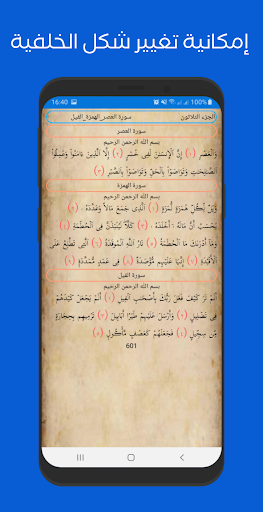 إمكانية تغيير شكل الخلفية
16:40 100%
الجزء الثلاثون سورة العصر_الهمزة_الفيل
سورة العصر
بسم الله الرحمن الرحيم
وَٱلْعَصْرِ (١) إِنَّ ٱلْإِنسَٰنَ لَفِى خُسْرٍ (٢) إِلَّا ٱلَّذِينَ ءَامَنُوا۟ وَعَمِلُوا۟
ٱلصَّٰلِحَٰتِ وَتَوَاصَوْا۟ بِٱلْحَقِّ وَتَوَاصَوْا۟ بِٱلصَّبْرِ (٣)
سورة الهمزة
بسم الله الرحمن الرحيم
وَيْلٌ لِّكُلِّ هُمَزَةٍ لُّمَزَةٍ (١) ٱلَّذِى جَمَعَ مَالًا وَعَدَّدَهُۥ (٢)
يَحْسَبُ أَنَّ مَالَهُۥٓ أَخْلَدَهُۥ (٣) كَلَّا لَيُنۢبَذَنَّ فِى ٱلْحُطَمَةِ (٤)
وَمَآ أَدْرَىٰكَ مَا ٱلْحُطَمَةُ (٥) نَارُ ٱللَّهِ ٱلْمُوقَدَةُ (٦) ٱلَّتِى تَطَّلِعُ عَلَى
ٱلْأَفْـِٔدَةِ (٧) إِنَّهَا عَلَيْهِم مُّؤْصَدَةٌ (٨) فِى عَمَدٍ مُّمَدَّدَةٍۭ (٩)
سورة الفيل
بسم الله الرحمن الرحيم
أَلَمْ تَرَ كَيْفَ فَعَلَ رَبُّكَ بِأَصْحَٰبِ ٱلْفِيلِ (١) أَلَمْ يَجْعَلْ كَيْدَهُمْ
فِى تَضْلِيلٍ (٢) وَأَرْسَلَ عَلَيْهِمْ طَيْرًا أَبَابِيلَ (٣) تَرْمِيهِم بِحِجَارَةٍ
مِّن سِجِّيلٍ (٤) فَجَعَلَهُمْ كَعَصْفٍ مَّأْكُولٍۭ (٥)
601